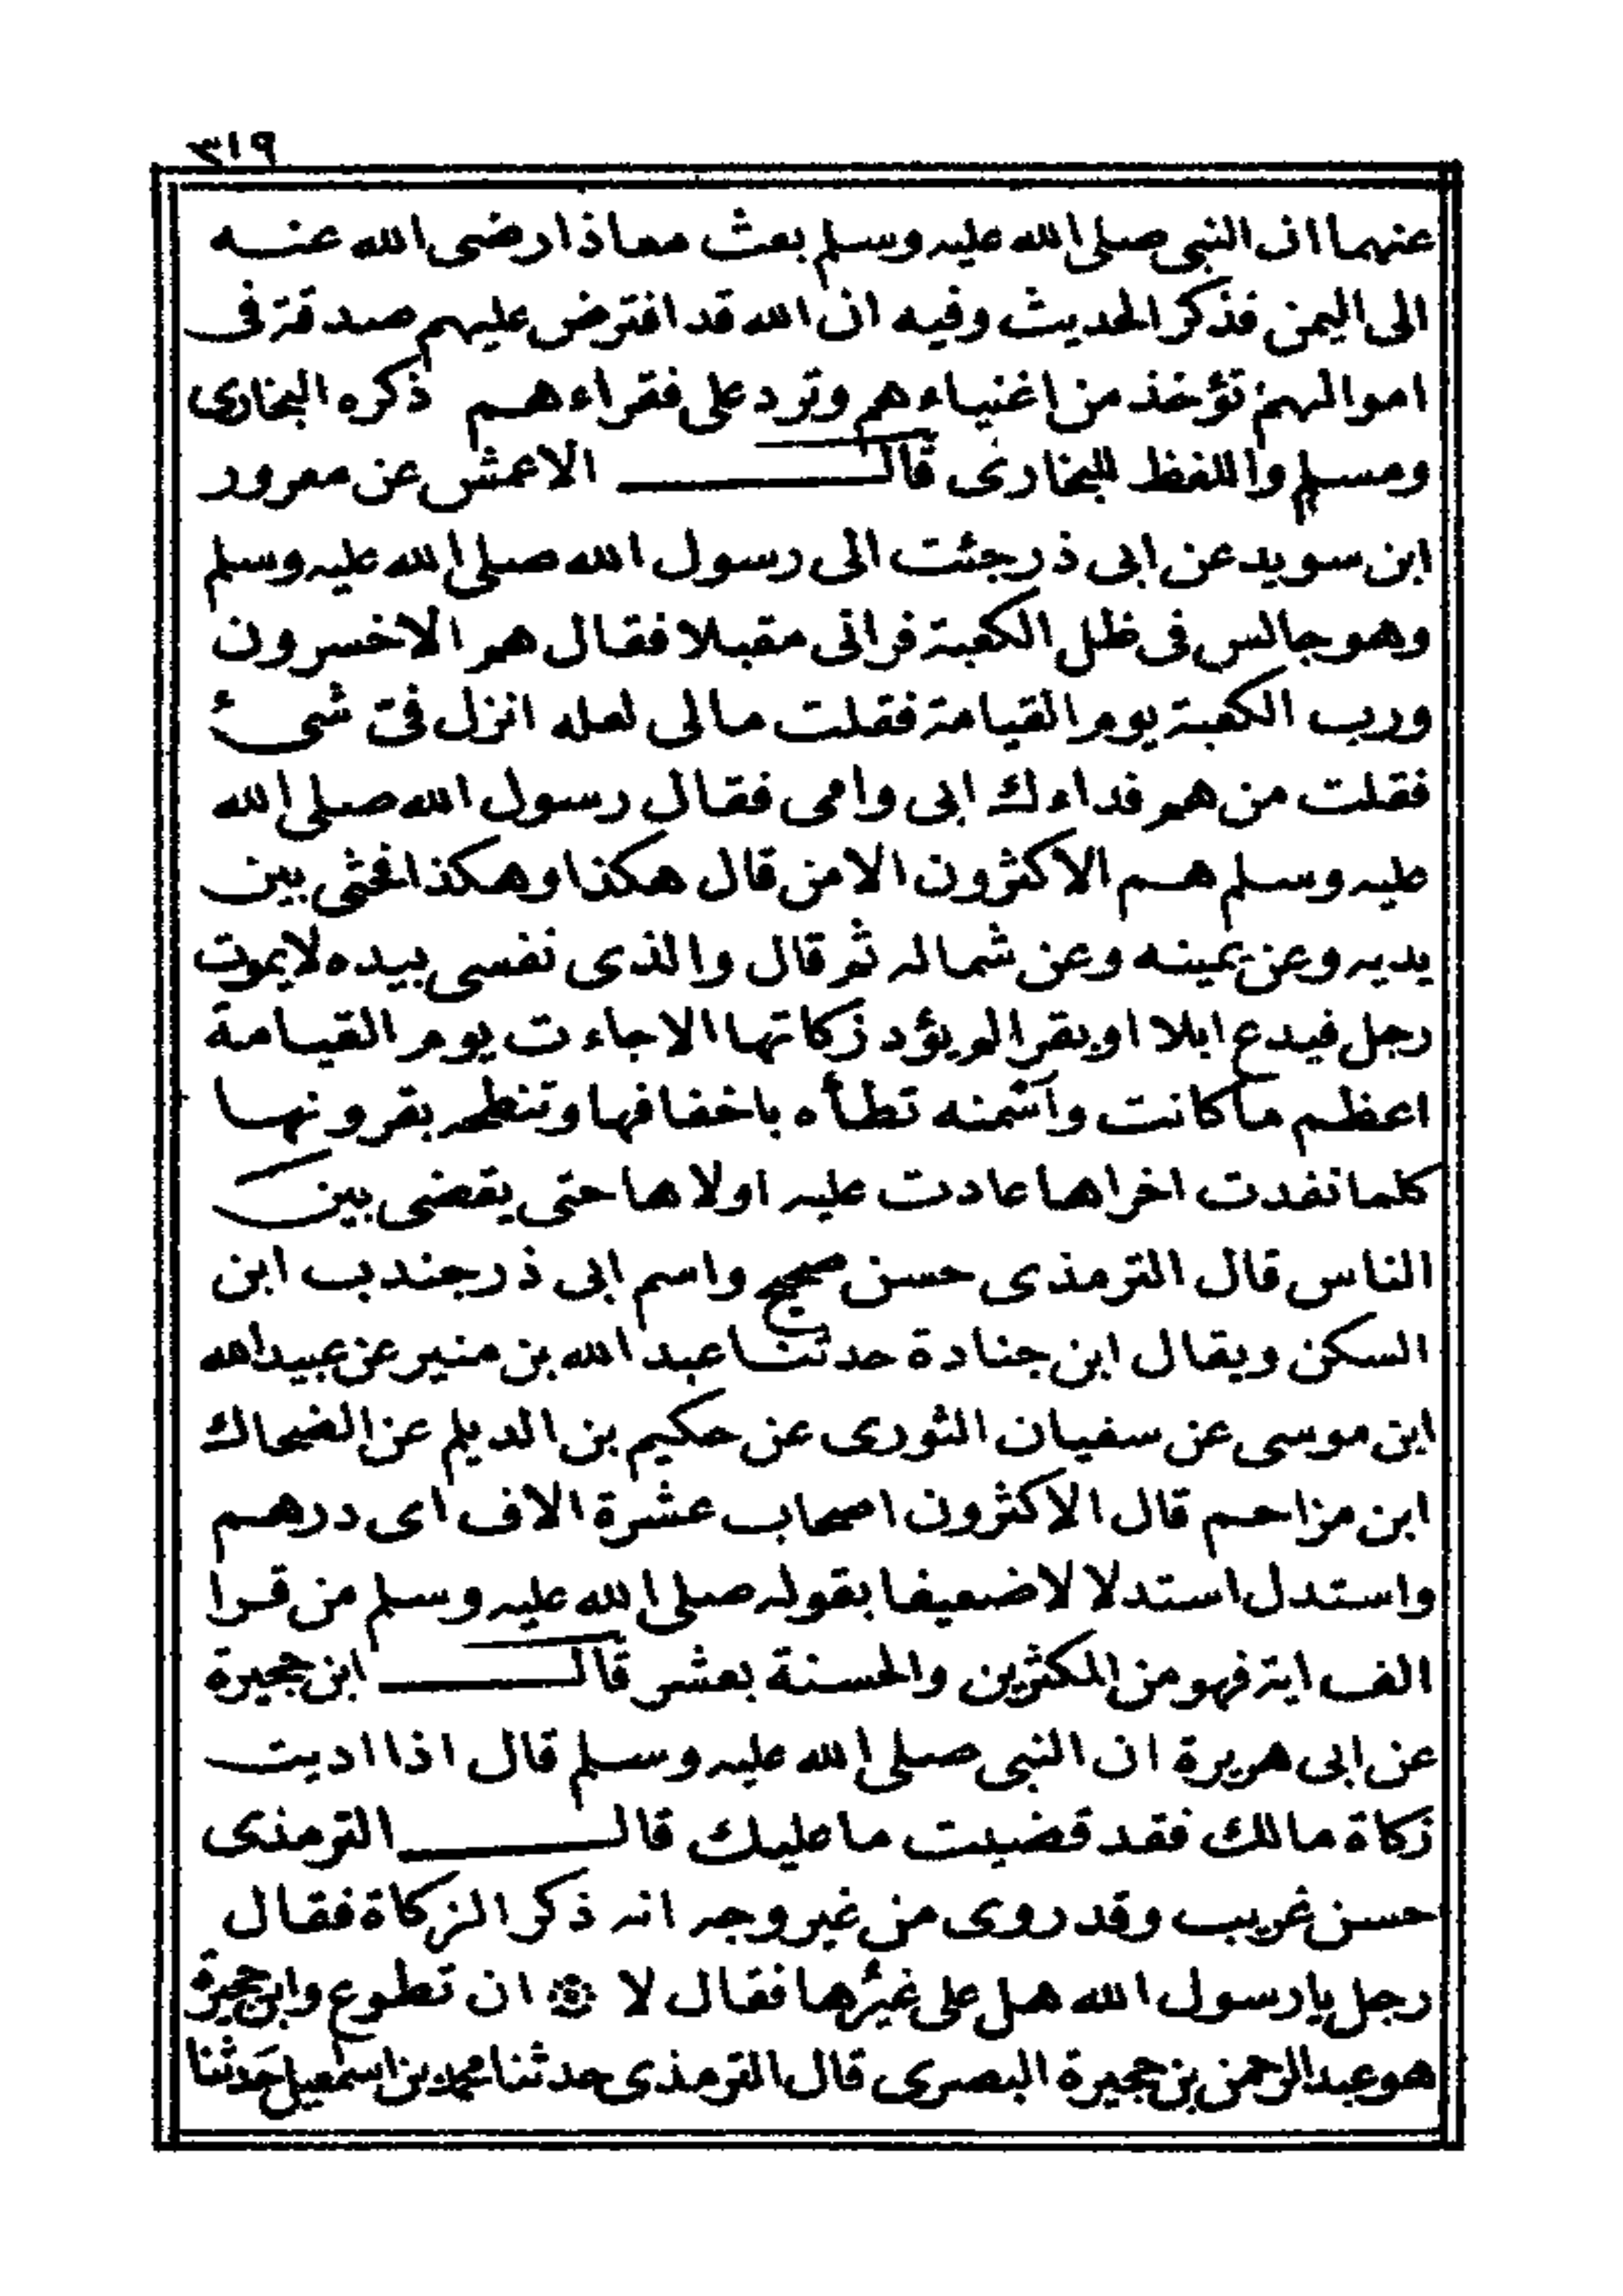 ٣١٩
عنهما ان النبى صلى الله عليه وسلم بعث معاذا رضى الله عنه
الى اليمن فذكر الحديث وفيه ان الله قد افترض عليهم صدقة فى
اموالهم تؤخذ من اغنياءهم وترد على فقراءهم ذكره البخارى
ومسلم واللفظ للبخارى قال الاعمش عن معرور
ابن سويد عن ابى ذر جئت الى رسول الله صلى الله عليه وسلم
وهو جالس فى ظل الكعبة فرانى مقبلا فقال هم الاخسرون
ورب الكعبة يوم القيامة فقلت مالى لعله انزل فى شىئ
فقلت من هم فداءك ابى وامى فقال رسول الله صلى الله
عليه وسلم هم الاكثرون الا من قال هكذا وهكذا فحثى بين
يديه وعن يمينه وعن شماله ثم قال والذى نفسى بيده لا يموت
رجل فيدع ابلا او بقرا لم يؤد زكاتها الا جاءت يوم القيامة
اعظم ما كانت واسمنه تطأه باخفافها وتنطحه بقرونها
كلما نفدت اخراها عادت عليه اولاها حتى يقضى بين
الناس قال الترمذى حسن صحيح واسم ابى ذر جندب ابن
السكن ويقال ابن جنادة حدثنا عبد الله بن منير عن عبيد الله
ابن موسى عن سفيان الثورى عن حكيم بن الديلم عن الضحاك
ابن مزاحم قال الاكثرون اصحاب عشرة الاف اى درهم
واستدل استدلالا ضعيفا بقوله صلى الله عليه وسلم من قرا
الف اية فهو من المكثرين والحسنة بعشر قال ابن حجيرة
عن ابى هريرة ان النبى صلى الله عليه وسلم قال اذا اديت
زكاة مالك فقد قضيت ما عليك قال الترمذى
حسن غريب وقد روى من غير وجه انه ذكر الزكاة فقال
رجل يا رسول الله هل على غيرها فقال لا ان تطوع وابن حجيرة
هو عبد الرحمن بن حجيرة البصرى قال الترمذى حدثنا محمد بن اسمعيل حدثنا